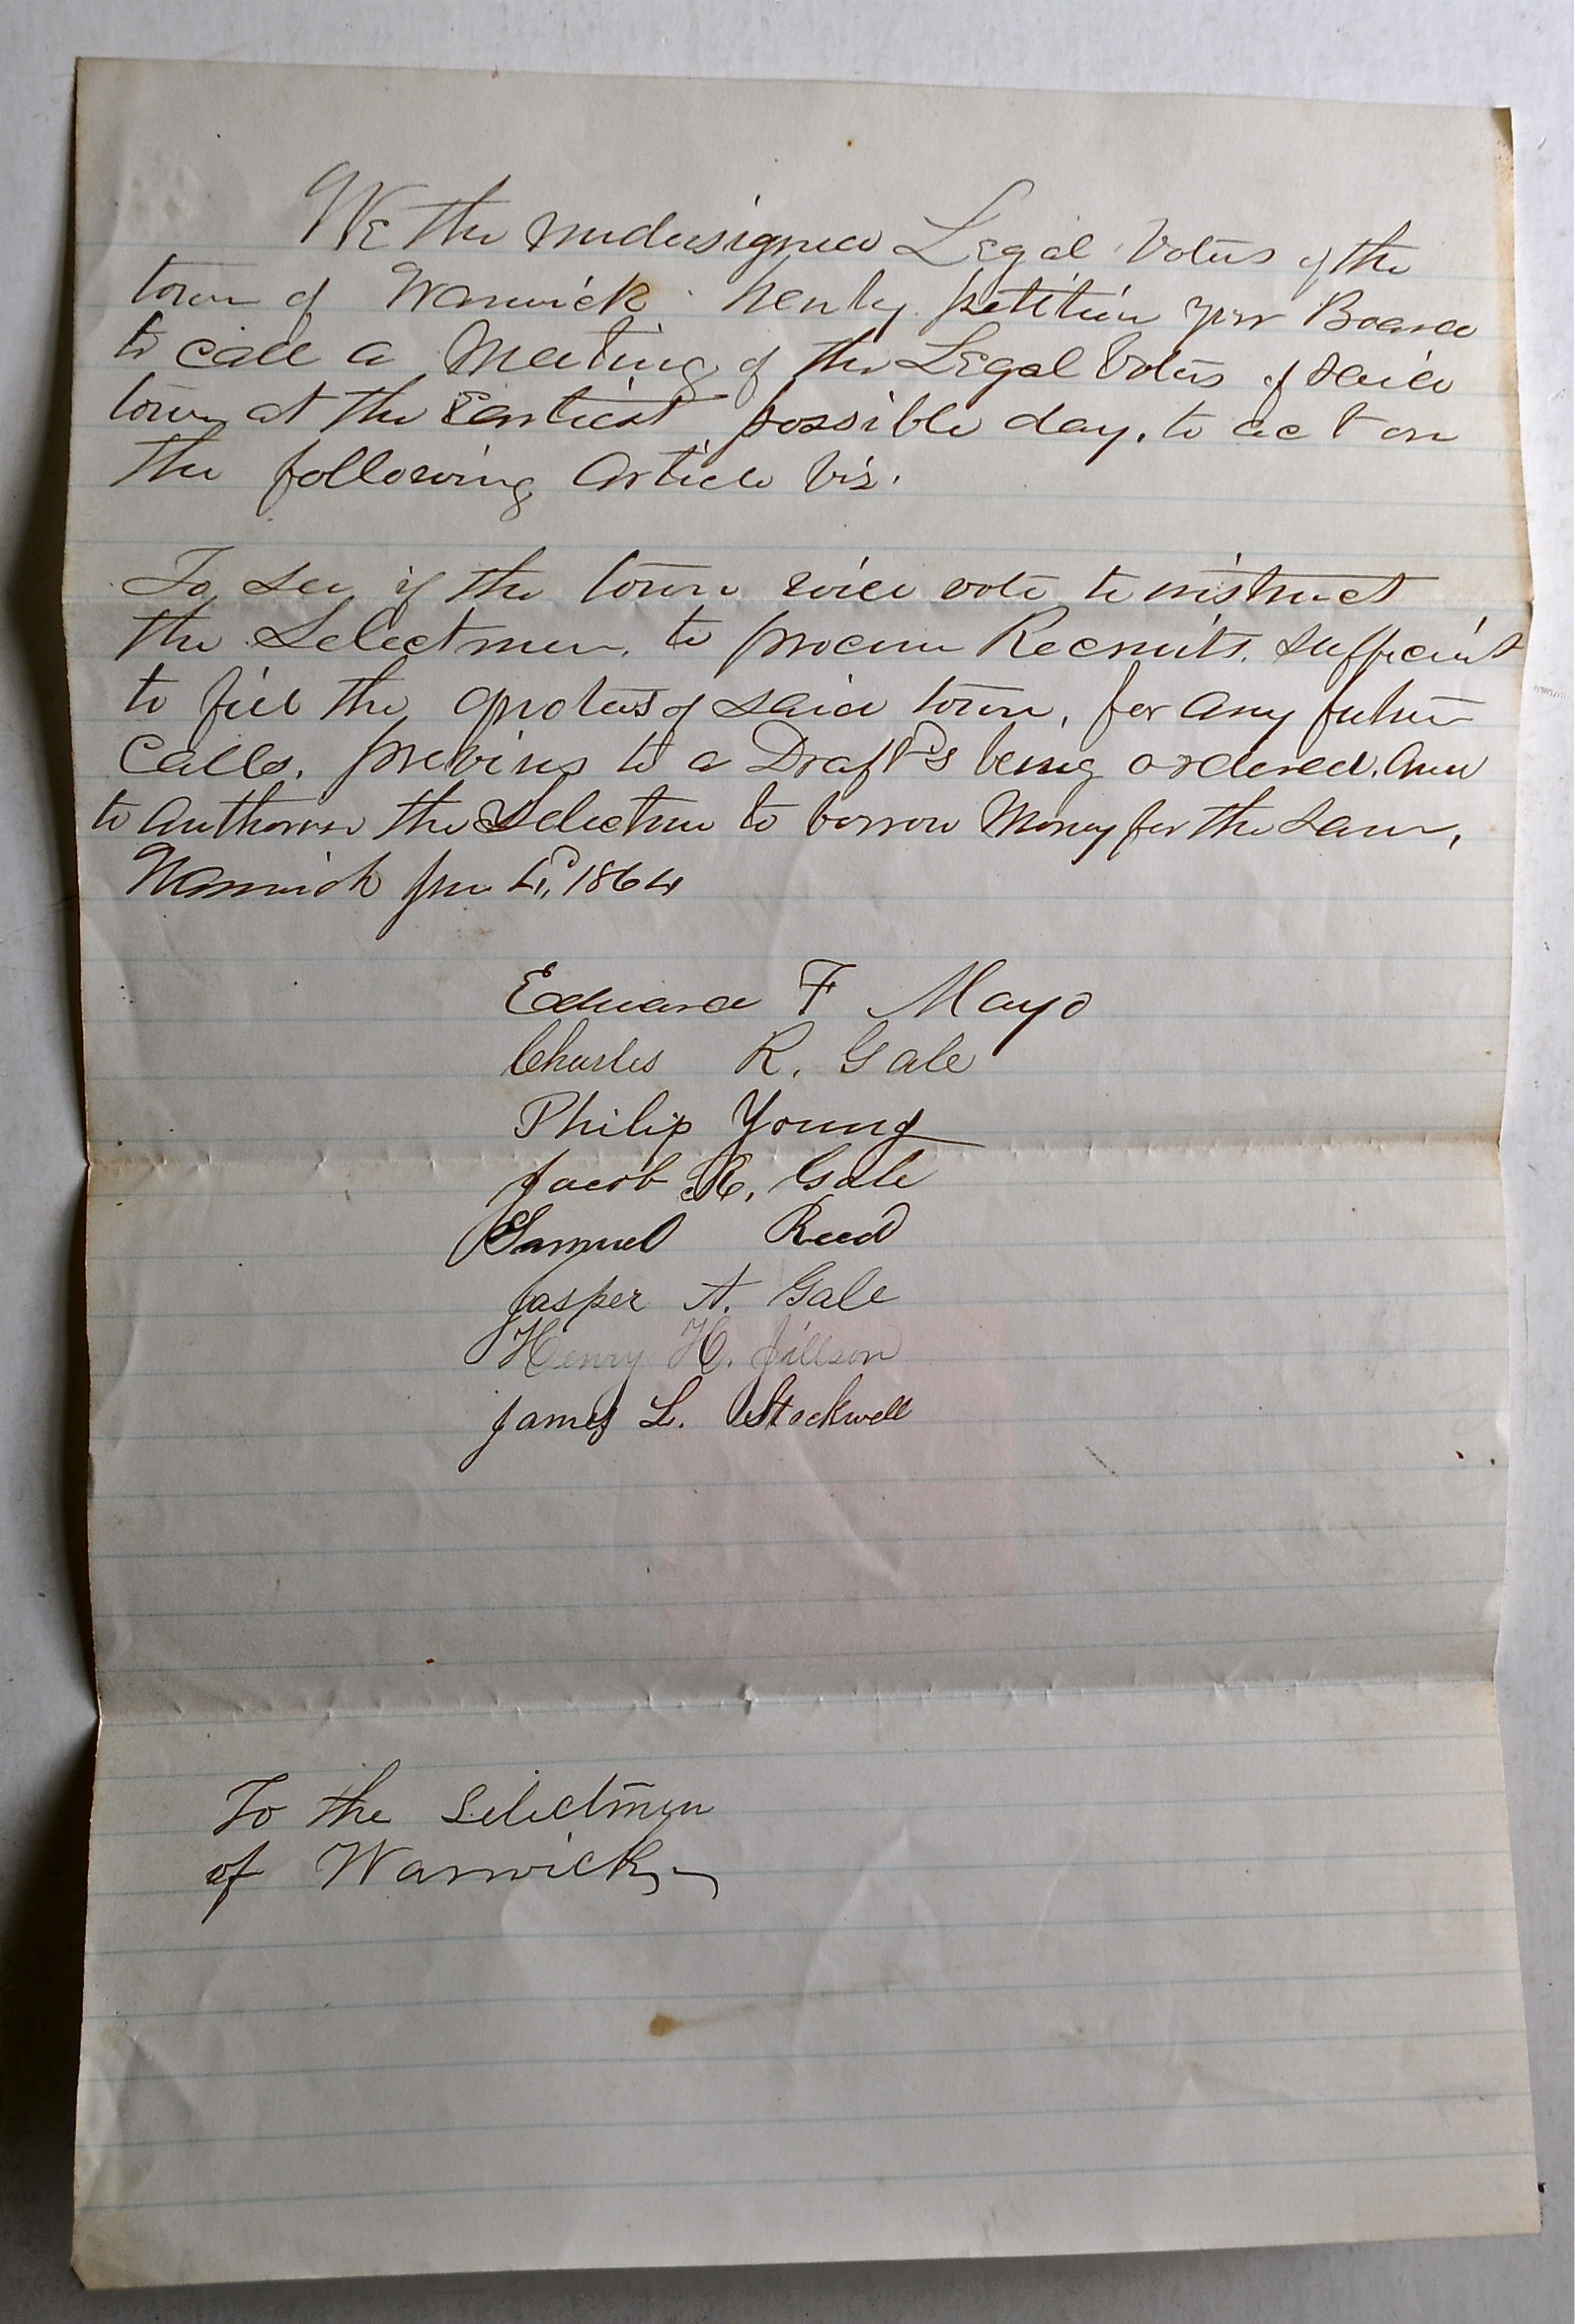 We the undersigned Legal Voters of the
town of Warwick hereby petition your Board
to call a Meeting of the Legal Voters of said
town at the Earliest possible day, to act on
the following Article Viz.
To see if the town will vote to instruct
the Selectmen, to procure Recruits, sufficient
to fill the quotas of said town, for any future
Calls, previous to a Draft's being ordered, and
to Authorise the Selectmen to borrow Money for the same,
Warwick 1864
Edward F Mayo
Charles R. Gale
Philip Young
Jacob R. Gale
Samuel Reed
Jasper A. Gale
Henry H. Jillson
James L. Stockwell
To the Selectmen
of Warwick